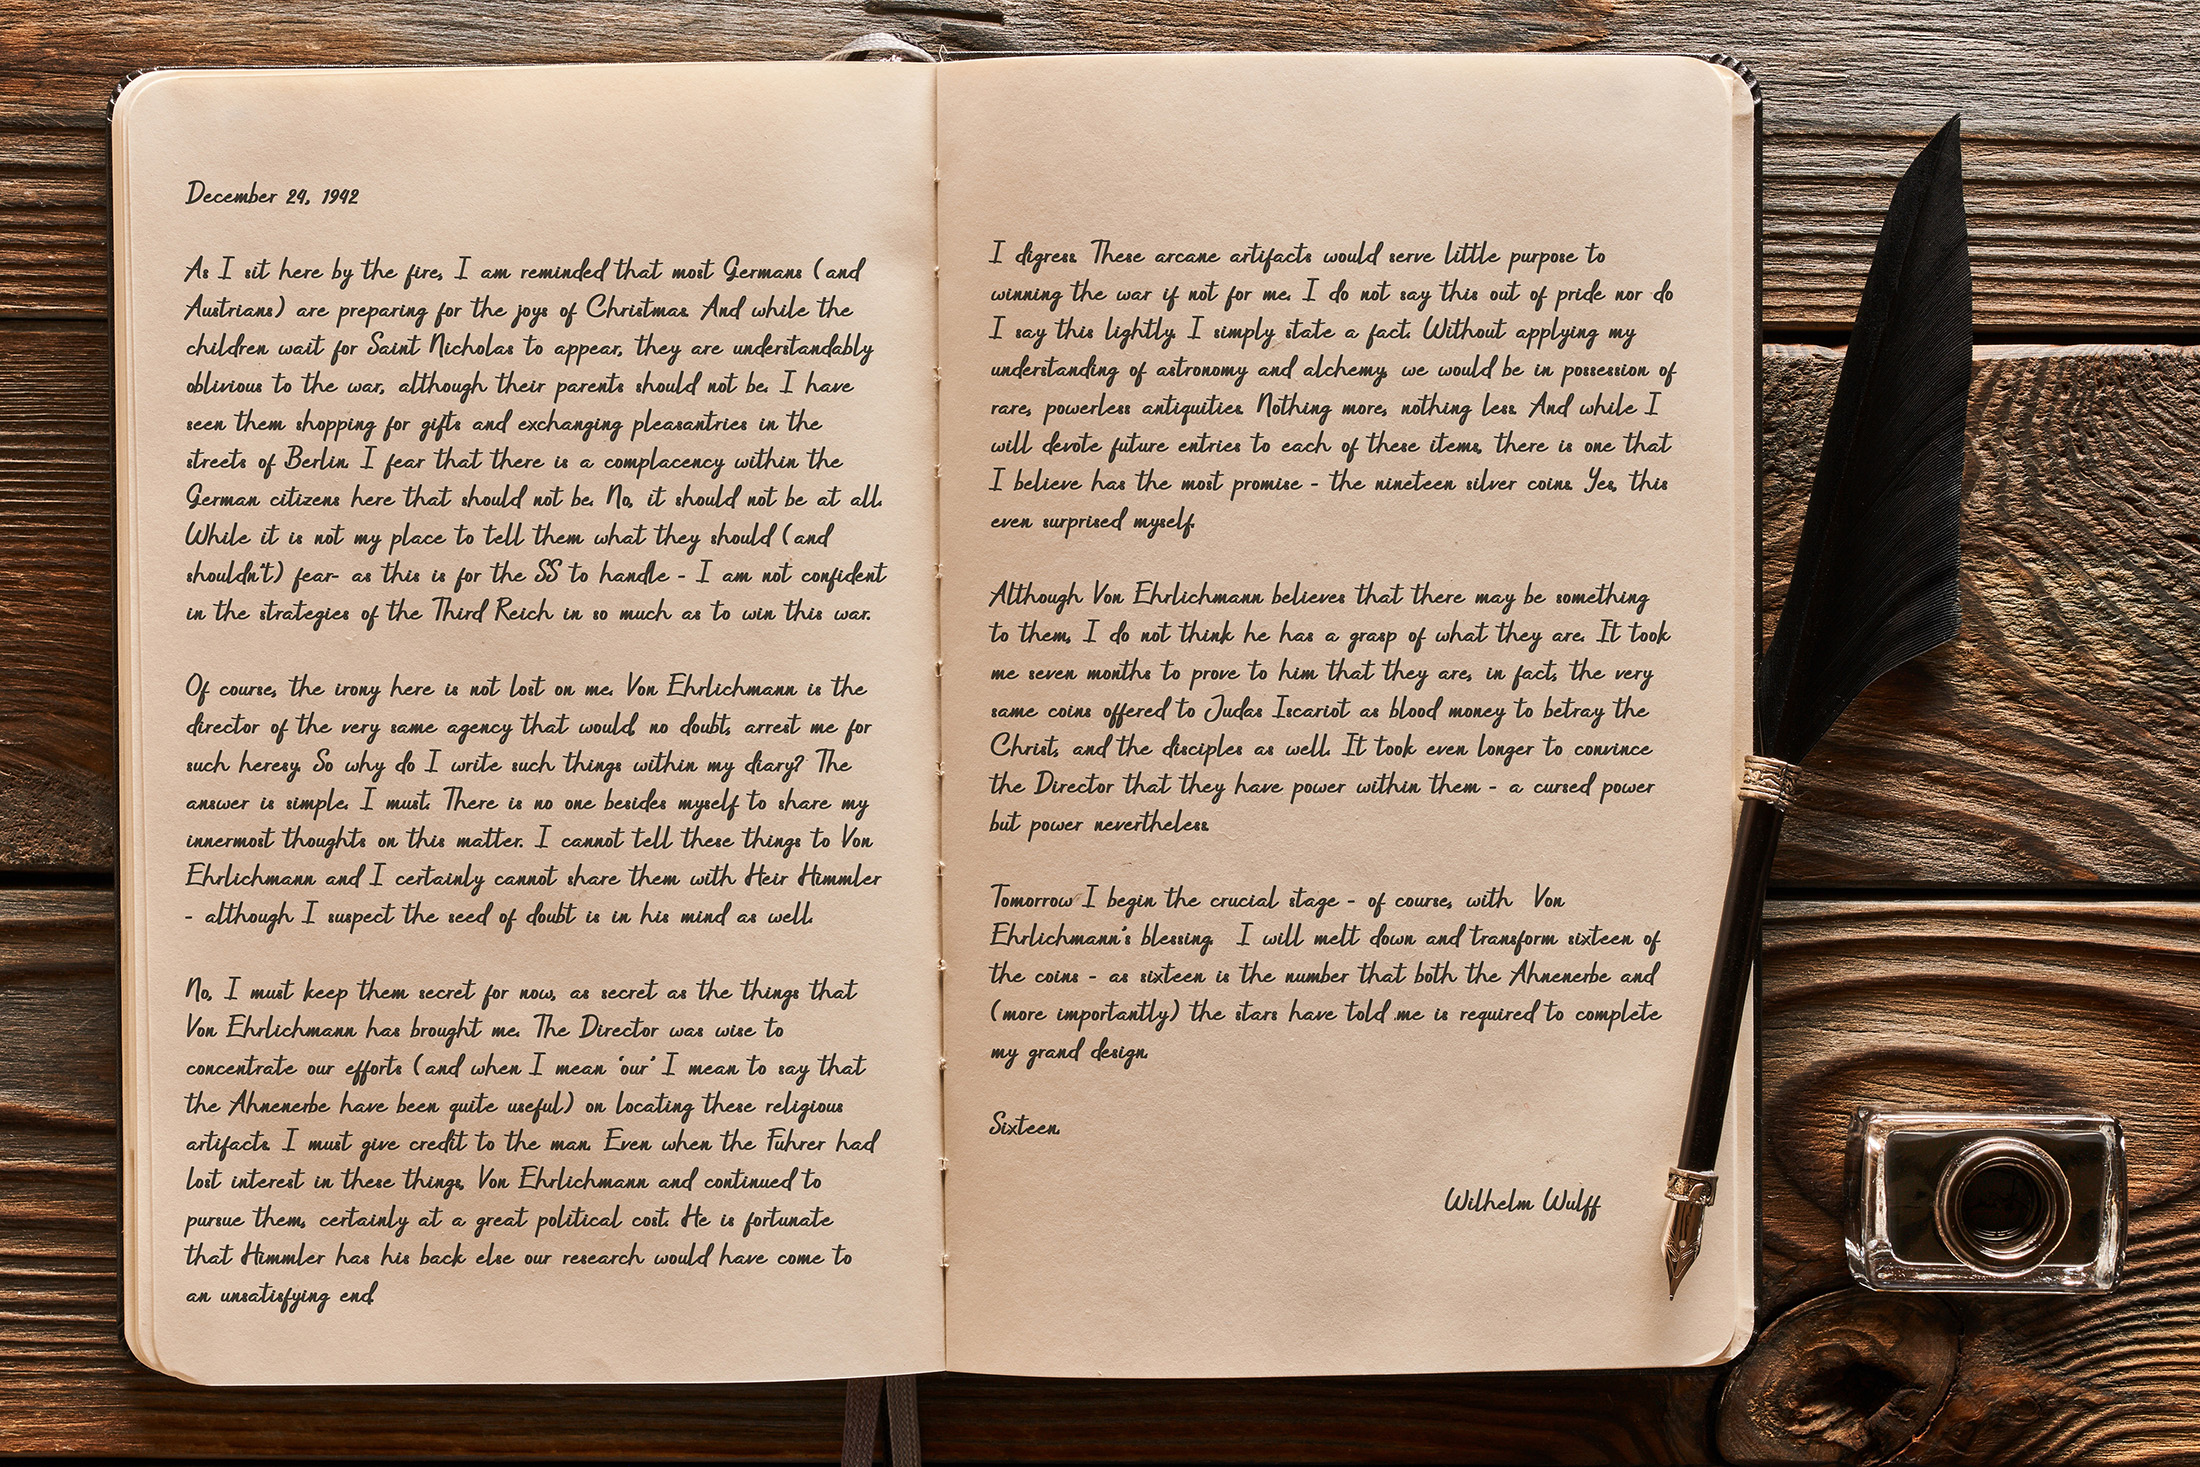 December 24, 1942
As I sit here by the fire, I am reminded that most Germans (and
Austrians) are preparing for the joys of Christmas. And while the
children wait for Saint Nicholas to appear, they are understandably
oblivious to the war, although their parents should not be. I have
seen them shopping for gifts and exchanging pleasantries in the
streets of Berlin. I fear that there is a complacency within the
German citizens here that should not be. No, it should not be at all.
While it is not my place to tell them what they should (and
shouldn't) fear- as this is for the SS to handle - I am not confident
in the strategies of the Third Reich in so much as to win this war.
Of course, the irony here is not lost on me. Von Ehrlichmann is the
director of the very same agency that would, no doubt, arrest me for
such heresy. So why do I write such things within my diary? The
answer is simple. I must. There is no one besides myself to share my
innermost thoughts on this matter. I cannot tell these things to Von
Ehrlichmann and I certainly cannot share them with Heir Himmler
- although I suspect the seed of doubt is in his mind as well.
No, I must keep them secret for now, as secret as the things that
Von Ehrlichmann has brought me. The Director was wise to
concentrate our efforts (and when I mean 'our' I mean to say that
the Ahnenerbe have been quite useful) on locating these religious
artifacts. I must give credit to the man. Even when the Fuhrer had
lost interest in these things, Von Ehrlichmann and continued to
pursue them, certainly at a great political cost. He is fortunate
that Himmler has his back else our research would have come to
an unsatisfying end.
I digress. These arcane artifacts would serve little purpose to
winning the war if not for me. I do not say this out of pride nor do
I say this lightly. I simply state a fact. Without applying my
understanding of astronomy and alchemy, we would be in possession of
rare, powerless antiquities. Nothing more, nothing less. And while I
will devote future entries to each of these items, there is one that
I believe has the most promise - the nineteen silver coins. Yes, this
even surprised myself.
Although Von Ehrlichmann believes that there may be something
to them, I do not think he has a grasp of what they are. It took
me seven months to prove to him that they are, in fact, the very
same coins offered to Judas Iscariot as blood money to betray the
Christ, and the disciples as well. It took even longer to convince
the Director that they have power within them - a cursed power
but power nevertheless.
Tomorrow I begin the crucial stage - of course, with Von
Ehrlichmann's blessing. I will melt down and transform sixteen of
the coins - as sixteen is the number that both the Ahnenerbe and
(more importantly) the stars have told me is required to complete
my grand design.
Sixteen.
Wilhelm Wulff